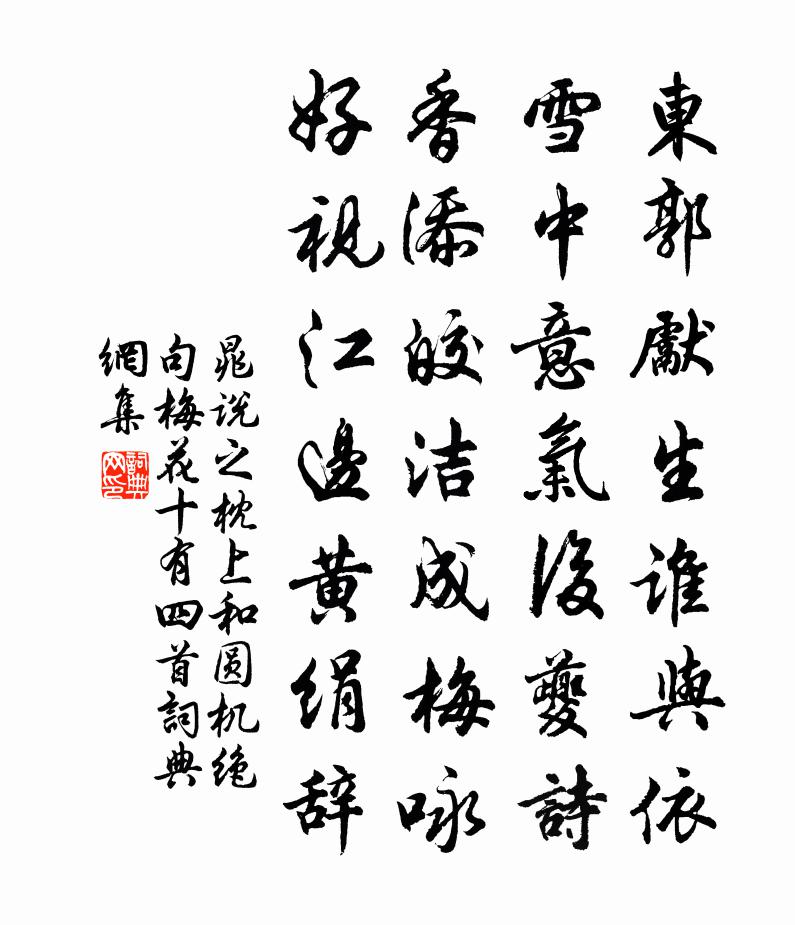 東郭獻生誰與依
雪中意氣後夔詩
香添皎洁成梅咏
好視江邊黄绢辞
晁说之枕上和圆机绝
句梅花十有四首詞典
網集
詞典網印